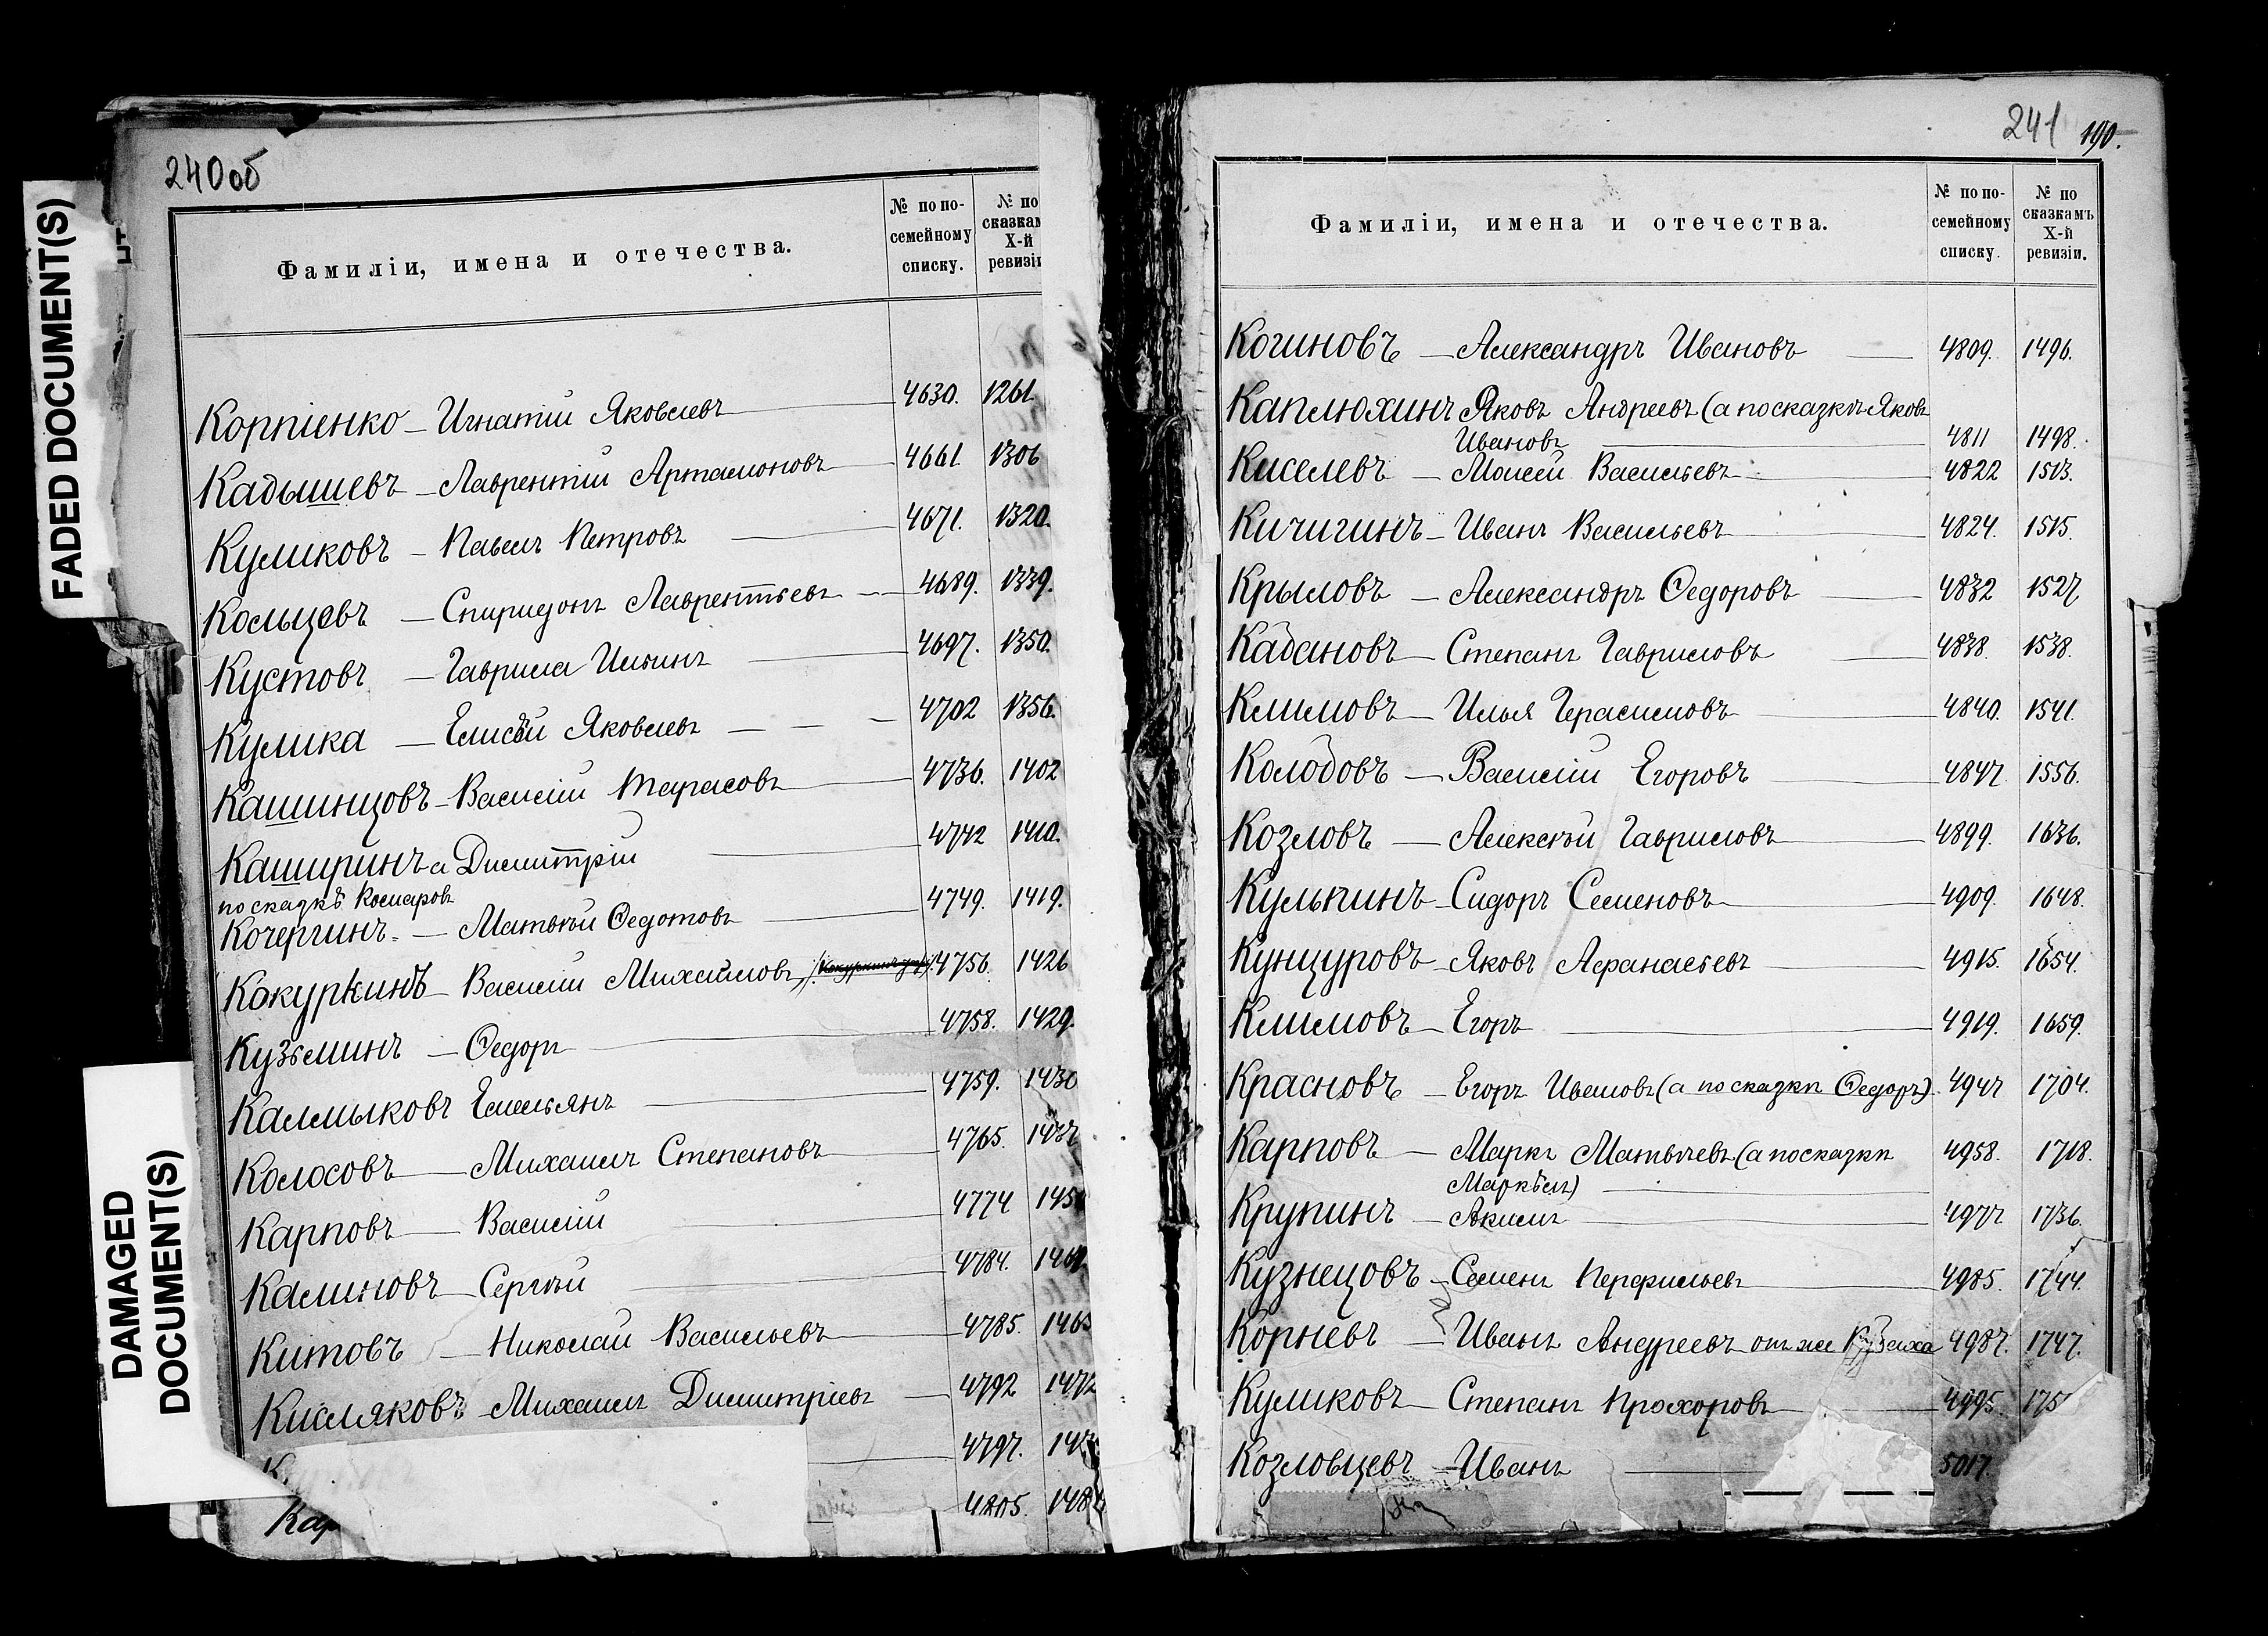 FADED DOCUMENT(S)
DAMAGED
DOCUMENT(S)
240об
Фамиліи, имена и отечества.
№ по по-
семейному
списку.
№ по
сказкам
Х-й
ревизіи
Корніенко — Игнатій Яковлевъ 4630. 1261.
Кадышевъ — Лаврентій Артамоновъ 4661. 1306
Куликовъ — Павелъ Петровъ 4671. 1320.
Кольцовъ — Спиридонъ Лаврентьевъ 4689. 1339.
Кустовъ — Гаврила Ильинъ 4697. 1350.
Кулика — Елисѣй Яковлевъ 4702 1356.
Кашинцовъ — Василій Тарасовъ 4736. 1402
Каширинъ а Димитрій 4742 1410.
по сказкѣ Комаровъ
Кочергинъ — Матвѣй Федотовъ 4749. 1419.
Кокуркинъ — Василій Михайловъ 4756. 1426
Кузьминъ — Ѳедоръ 4758. 1429.
Калмыковъ Емельянъ 4759. 1430
Колосовъ — Михаилъ Степановъ 4765.
Карповъ — Василій 4774 145
Калиновъ — Сергѣй 4784.
Китовъ — Николай Васильевъ 4785. 1463
Кисляковъ — Михаилъ Димитріевъ 4792 1472
К. 4797.
Кар 4805. 148
241 190.
Фамиліи, имена и отечества.
№ по по-
семейному
списку.
№ по
сказкамъ
Х-й
ревизіи.
Когиновъ — Александръ Ивановъ 4809. 1496.
Каплюхинъ Яковъ Андреевъ (а по сказкѣ Яковъ
Ивановъ 4811 1498.
Киселевъ — Моисей Васильевъ 4822 1513.
Кичигинъ — Иванъ Васильевъ 4824. 1515.
Крыловъ — Александръ Ѳедоровъ 4832 1527
Кадановъ — Степанъ Гавриловъ 4838. 1538.
Климовъ — Илья Герасимовъ 4840. 1541.
Колодовъ — Василій Егоровъ 4847 1556.
Козловъ — Алексѣй Гавриловъ 4899. 1636.
Кулькинъ — Сидоръ Семеновъ 4909. 1648.
Кунцуровъ — Яковъ Афанасьевъ 4915. 1654.
Климовъ — Егоръ 4919. 1659.
Красновъ — Егоръ Ивановъ (а по сказки Ѳедоръ) 4947 1704.
Карповъ — Маркъ Матвѣевъ (а по сказки 4958. 1718.
Маркѣлъ)
Крупинъ — Акимъ 4977 1736.
Кузнецовъ — Семенъ Перфильевъ 4985. 1744.
Корневъ — Иванъ Андреевъ онъ же 4987. 1747.
Куликовъ — Степанъ Прохоровъ 4995. 175
Козловцевъ — Иванъ 5017.